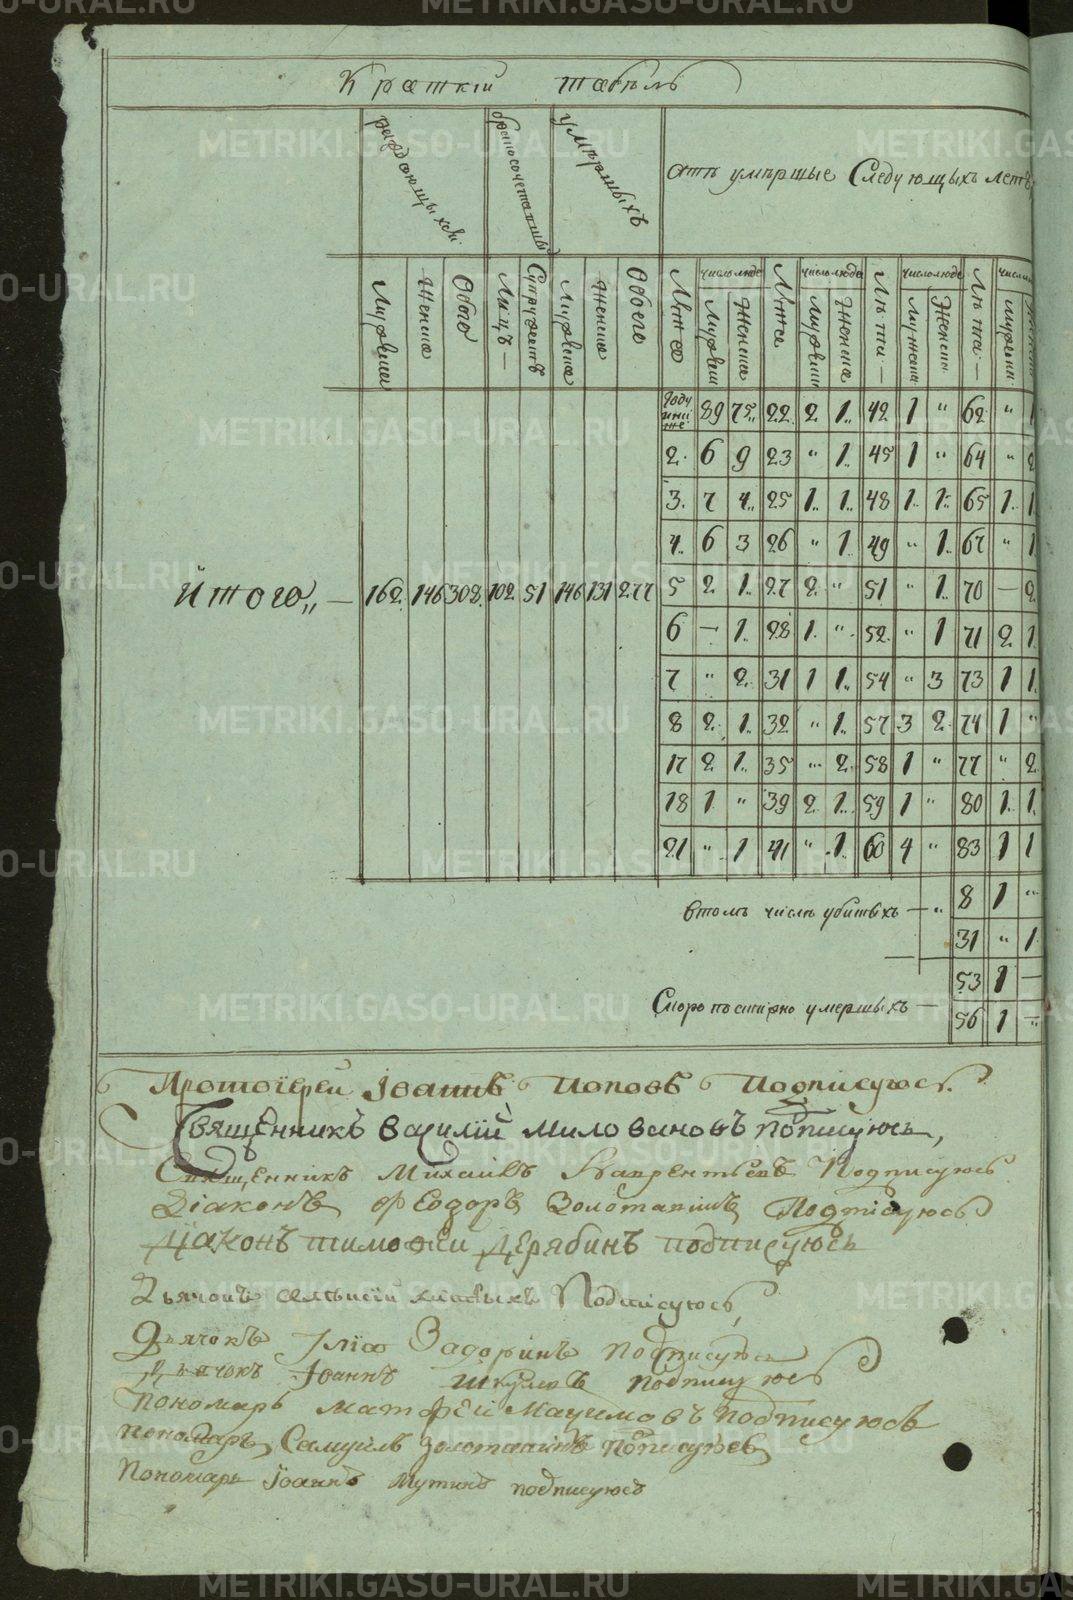 Краткiй табель
рождающихся
бракосочетавшихся
умершыхъ
отъ умершые Следующыхъ летъ
Мужеска
Женска
Обоего
Лицъ —
Супружествъ
Мужеска
Женска
Обоего
Лѣта
число люде
Мужеска
Женска
Лѣта
число люде
Мужеска
Женска
Лѣта —
число люде
Мужеска
Женска
Лѣта —
число
Мужеска
году и ниже 89 75 22 2 1 42 1 " 62 " 1
2 6 9 23 " 1 45 1 " 64 " 2
3 7 4 25 1 1 48 1 1 65 1 1
4 6 3 26 " 1 49 " 1 67 " 1
Итого — 162 146 308 102 51 146 131 277 5 2 1 27 2 " 51 " 1 70 — 2
6 — 1 28 1 " 52 " 1 71 2 1
7 " 2 31 1 1 54 " 3 73 1 1
8 2 1 32 " 1 57 3 2 74 1 "
17 2 1 35 " 2 58 1 " 77 " 2
18 1 " 39 2 1 59 1 " 80 1 1
21 " 1 41 " 1 60 4 " 83 1 1
втомъ числѣ убитыхъ — " 8 1 "
31 " 1
53 1 —
Скоропостижно умершыхъ — 56 1 "
Протоiерей Iоаннъ Поповъ Подписуюсь
Священникъ Василiй Миловановъ подписуюсь,
Священникъ Михаилъ Лаврентьевъ Подписуюсь
Дiаконъ Ѳеодоръ Золотавинъ Подписуюсь
Дiаконъ Тимоѳеи Дерябинъ подписуюсь
Дьячокъ Подписуюсь,
Дьячокъ Iлiа Задоринъ подписуюсь
Дьячокъ Iоаннъ подписуюсь
Пономарь Матфей Маѯимовъ подписуюсь
Пономарь Самуилъ Золотавинъ подписуюсь
Пономарь Iоаннъ Мутинъ подписуюсь
METRIKI.GASO-URAL.RU